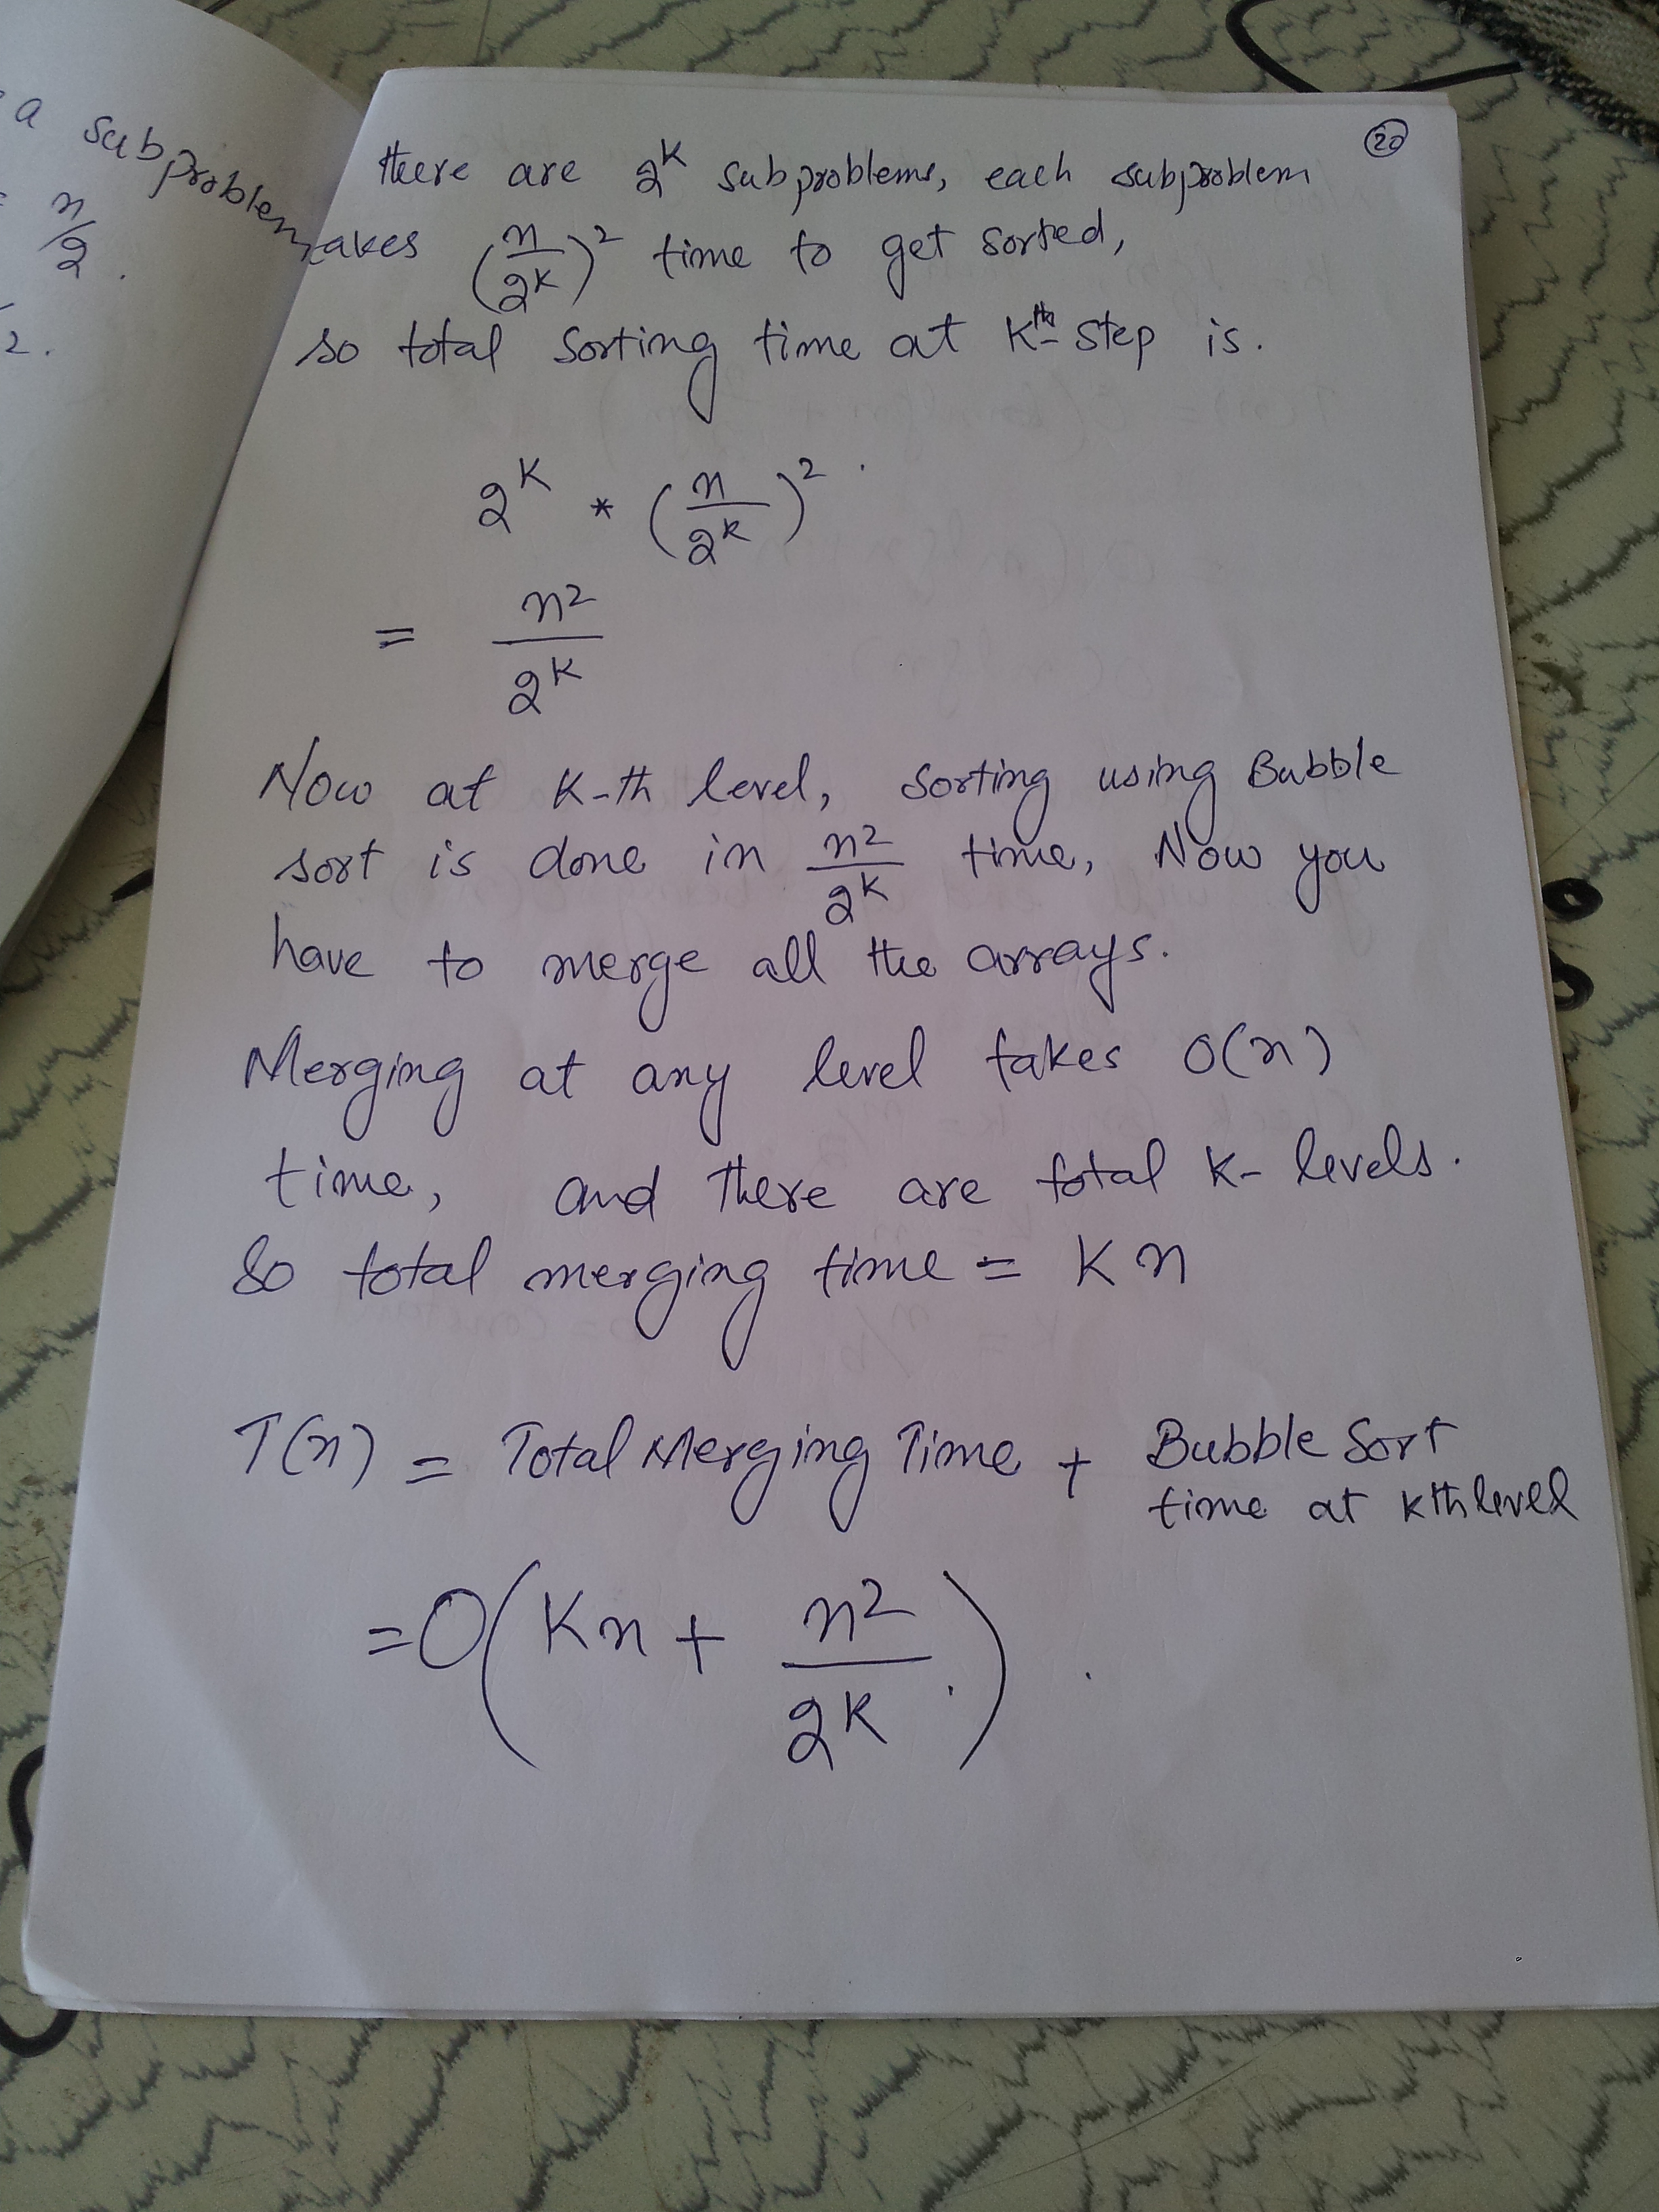 20
there are 2^k subproblems, each subproblem
takes (n/2^k)^2 time to get sorted,
so total sorting time at k^th step is.
2^k * (n/2^k)^2.
= n^2/2^k
Now at k-th level, sorting using Bubble
sort is done in n^2/2^k time, Now you
have to merge all the arrays.
Merging at any level takes O(n)
time, and there are total k-levels.
So total merging time = Kn
T(n) = Total Merging Time + Bubble Sort
time at kth level
= O(Kn + n^2/2^k).
a subproblem
n/2.
2.